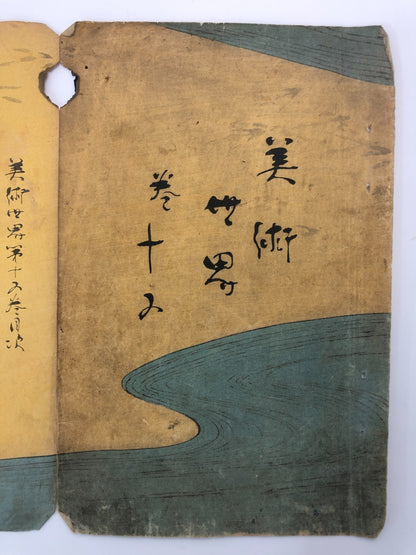 美術
世界
巻十五
美術世界第十五巻目次